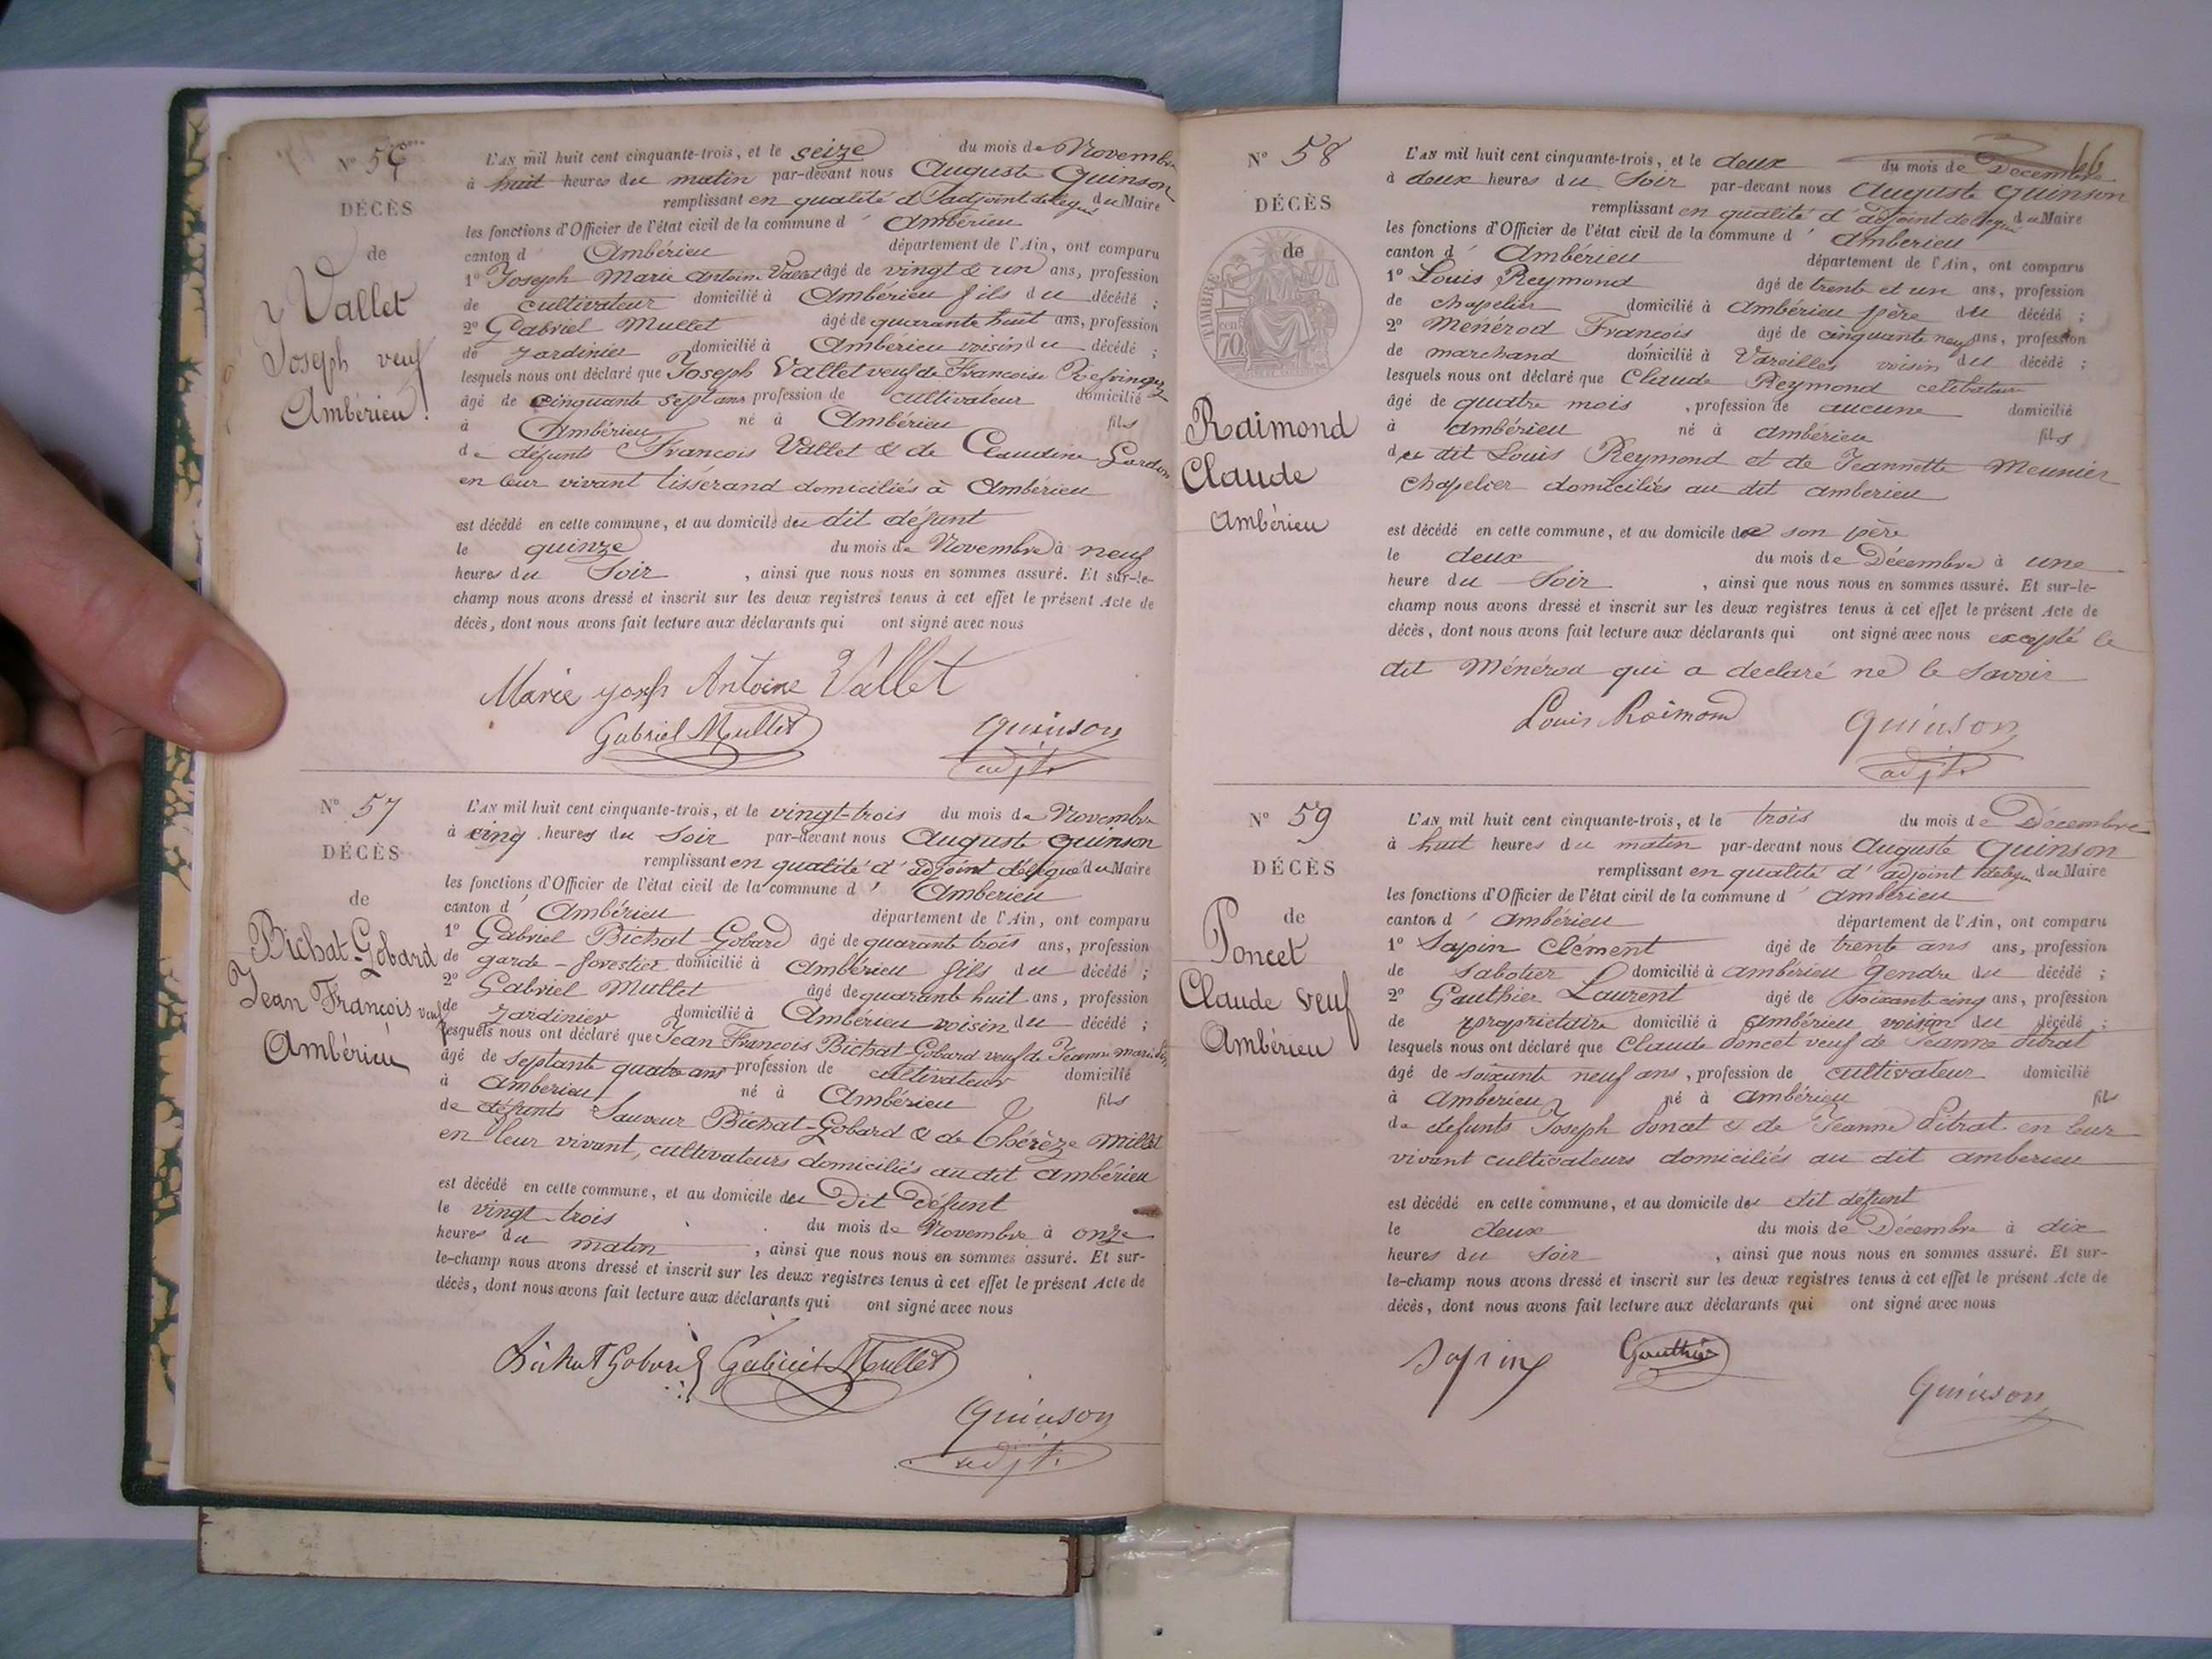 N° 56
DÉCÈS
de
Vallet
Joseph veuf
Ambérieu
L'AN mil huit cent cinquante-trois, et le seize du mois de Novembre
à huit heures du matin par-devant nous Auguste Quinson
remplissant en qualité d'adjoint délégué du Maire
les fonctions d'Officier de l'état civil de la commune d' Ambérieu
canton d' Ambérieu département de l'Ain, ont comparu
1° Joseph Marie Antoine Vallet âgé de vingt & un ans, profession
de cultivateur domicilié à Ambérieu fils du décédé ;
2° Gabriel Mullet âgé de quarante huit ans, profession
de Jardinier domicilié à Ambérieu voisin du décédé ;
lesquels nous ont déclaré que Joseph Vallet veuf de Francoise
âgé de cinquante sept ans profession de cultivateur domicilié
à Ambérieu né à Ambérieu fils
de défunts Francois Vallet & de Claudine Gardon
en leur vivant tisserand domiciliés à Ambérieu
est décédé en cette commune, et au domicile du dit défunt
le quinze du mois de Novembre à neuf
heures du Soir , ainsi que nous nous en sommes assuré. Et sur-le-
champ nous avons dressé et inscrit sur les deux registres tenus à cet effet le présent Acte de
décès, dont nous avons fait lecture aux déclarants qui ont signé avec nous
Marie Antoine Vallet
Gabriel Mullet Quinson
adjt.
N° 57
DÉCÈS
de
Bichat-Gobard
Jean François veuf
Ambérieu
L'AN mil huit cent cinquante-trois, et le vingt-trois du mois de Novembre
à cinq heures du Soir par-devant nous Auguste Quinson
remplissant en qualité d'adjoint délégué du Maire
les fonctions d'Officier de l'état civil de la commune d' Amberieu
canton d' Ambérieu département de l'Ain, ont comparu
1° Gabriel Bichat-Gobard âgé de quarante trois ans, profession
de garde-forestier domicilié à Ambérieu fils du décédé ;
2° Gabriel Mullet âgé de quarante huit ans, profession
de Jardinier domicilié à Ambérieu voisin du décédé ;
lesquels nous ont déclaré que Jean Francois Bichat-Gobard veuf de Jeanne marie
âgé de septante quatre ans profession de cultivateur domicilié
à Amberieu né à Ambérieu fils
de défunts Sauveur Bichat-Gobard & de Thérèze Millet
en leur vivant, cultivateurs domiciliés au dit Ambérieu
est décédé en cette commune, et au domicile du Dit Défunt
le vingt trois du mois de Novembre à onze
heures du matin , ainsi que nous nous en sommes assuré. Et sur-
le-champ nous avons dressé et inscrit sur les deux registres tenus à cet effet le présent Acte de
décès, dont nous avons fait lecture aux déclarants qui ont signé avec nous
Bichat Gobard Gabriel Mullet
Quinson
adjt.
66
N° 58
DÉCÈS
de
TIMBRE
70
Raimond
Claude
Ambérieu
L'AN mil huit cent cinquante-trois, et le deux du mois de Decembre
à deux heures du Soir par-devant nous Auguste Quinson
remplissant en qualité d'adjoint délégué du Maire
les fonctions d'Officier de l'état civil de la commune d' Amberieu
canton d' Ambérieu département de l'Ain, ont comparu
1° Louis Reymond âgé de trente et un ans, profession
de chapelier domicilié à Ambérieu père du décédé ;
2° Menérod François âgé de cinquante neuf ans, profession
de marchand domicilié à Vareilles voisin du décédé ;
lesquels nous ont déclaré que Claude Reymond celibataire
âgé de quatre mois , profession de aucune domicilié
à Ambérieu né à Ambérieu fils
du dit Louis Reymond et de Jeannette Meunier
Chapelier domiciliés au dit amberieu
est décédé en cette commune, et au domicile de son père
le deux du mois de Décembre à une
heure du Soir , ainsi que nous nous en sommes assuré. Et sur-le-
champ nous avons dressé et inscrit sur les deux registres tenus à cet effet le présent Acte de
décès, dont nous avons fait lecture aux déclarants qui ont signé avec nous excepté le
dit Ménérod qui a declaré ne le savoir
Louis Raimond Quinson
adjt.
N° 59
DÉCÈS
de
Poncet
Claude veuf
Ambérieu
L'AN mil huit cent cinquante-trois, et le trois du mois de Décembre
à huit heures du matin par-devant nous Auguste Quinson
remplissant en qualité d'adjoint délégué du Maire
les fonctions d'Officier de l'état civil de la commune d' Ambérieu
canton d' Ambérieu département de l'Ain, ont comparu
1° Sapin Clément âgé de trente ans ans, profession
de Sabotier domicilié à ambérieu Gendre du décédé ;
2° Gauthier Laurent âgé de soixante cinq ans, profession
de proprietaire domicilié à Ambérieu voisin du décédé ;
lesquels nous ont déclaré que Claude Poncet veuf de Jeanne Ditrat
âgé de soixante neuf ans , profession de cultivateur domicilié
à Amberieu né à Ambérieu fils
de defunts Joseph Poncet & de Jeanne Ditrat en leur
vivant cultivateurs domiciliés au dit amberieu
est décédé en cette commune, et au domicile du dit défunt
le deux du mois de Décembre à dix
heures du Soir , ainsi que nous nous en sommes assuré. Et sur-
le-champ nous avons dressé et inscrit sur les deux registres tenus à cet effet le présent Acte de
décès, dont nous avons fait lecture aux déclarants qui ont signé avec nous
Sapin Gauthier
Quinson